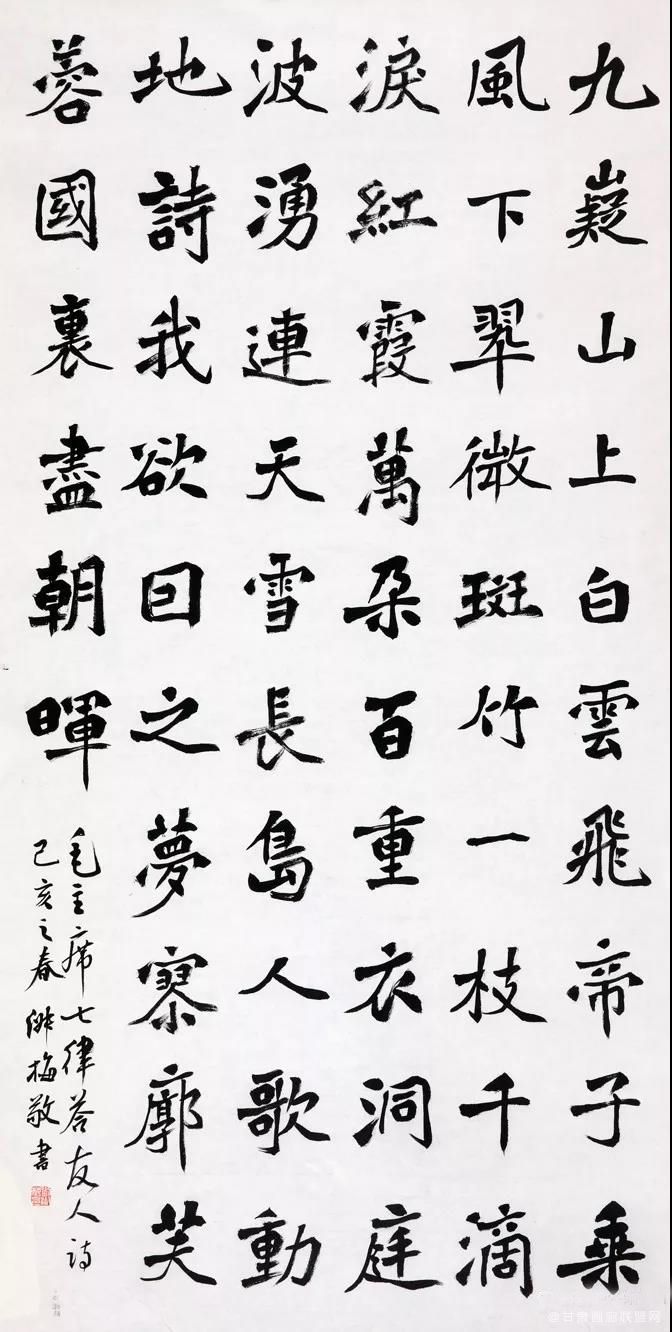 九嶷山上白雲飛帝子乘
風下翠微斑竹一枝千滴
淚紅霞萬朵百重衣洞庭
波湧連天雪長島人歌動
地詩我欲囙之夢寥廓芙
蓉國裏盡朝暉
毛主席七律答友人詩
己亥之春 梅敬書
@甘肃画廊联盟网